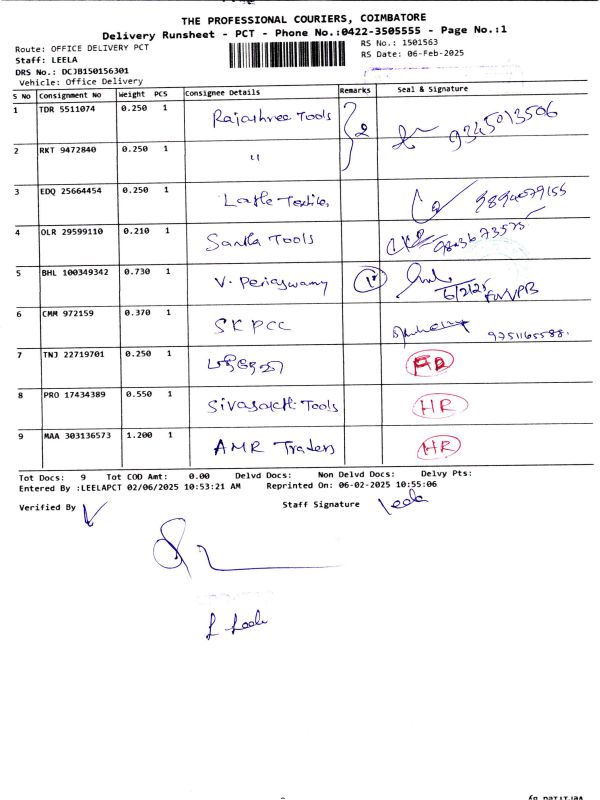 THE PROFESSIONAL COURIERS, COIMBATORE
Delivery Runsheet - PCT - Phone No.:0422-3505555 - Page No.:1
Route: OFFICE DELIVERY PCT
RS No.: 1501563
Staff: LEELA
RS Date: 06-Feb-2025
DRS No.: DCJB150156301
Vehicle: Office Delivery
S No Consignment No Weight PCS Consignee Details Remarks Seal & Signature
1 TDR 5511074 0.250 1 Rajashree Tools 2 9345013506
2 RKT 9472840 0.250 1 "
3 EDQ 25664454 0.250 1 9894079155
4 OLR 29599110 0.210 1 Tools
5 BHL 100349342 0.730 1 V. Periaswamy 6/2/25
6 CMM 972159 0.370 1 SKPCC 9751165588.
7 TNJ 22719701 0.250 1
8 PRO 17434389 0.550 1 Sivasakthi Tools HR
9 MAA 303136573 1.200 1 AMR Traders HR
Tot Docs: 9 Tot COD Amt: 0.00 Delvd Docs: Non Delvd Docs: Delvy Pts:
Entered By :LEELAPCT 02/06/2025 10:53:21 AM Reprinted On: 06-02-2025 10:55:06
Verified By Staff Signature Leela
L Leela